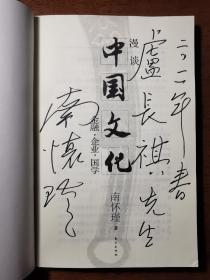 漫谈
中国文化
金融·企业·国学
南怀瑾 著
二〇一一年書
盧長祺先生
南懷瑾